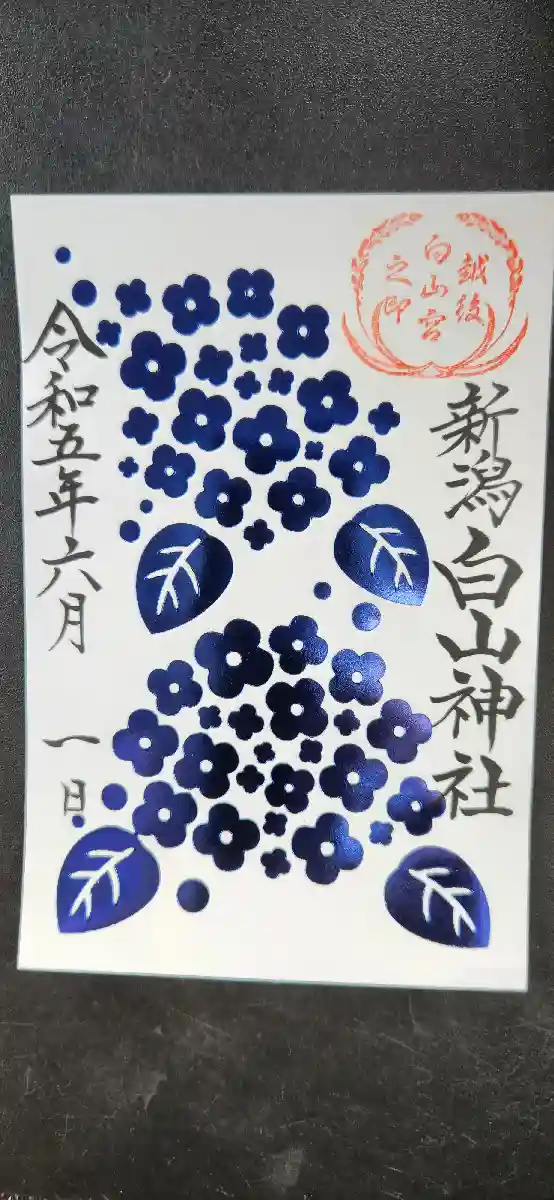 越後
白山宮
之印
新潟白山神社
令和五年六月一日